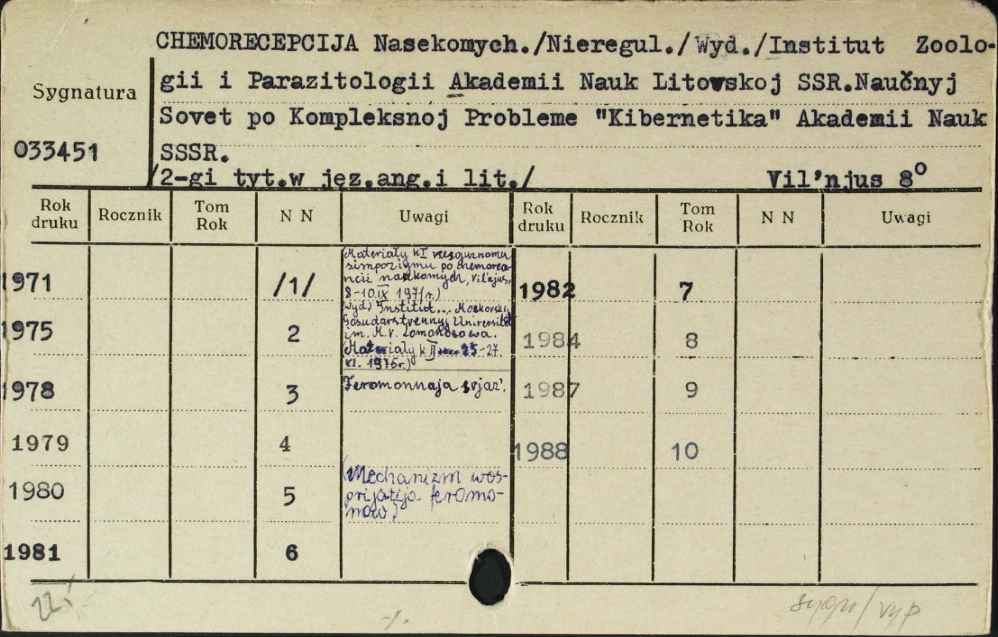 CHEMORECEPCIJA Nasekomych./Nieregul./Wyd./Institut Zoolo-
gii i Parazitologii Akademii Nauk Litowskoj SSR.Naučnyj
Sygnatura
Sovet po Kompleksnoj Probleme "Kibernetika" Akademii Nauk
033451
SSSR.
/2-gi tyt.w jęz.ang.i lit./ Vil'njus 8°
Rok druku Rocznik Tom Rok N N Uwagi Rok druku Rocznik Tom Rok N N Uwagi
1971 /1/
(Materiały k I vsesojuznomu
simpoziumu po chemorece-
ncii nasekomych, Vilnjus,
8-10.IX 1971r.)
1982 7
1975 2
Wyd. Institut... Moskovskij
Gosudarstvennyj Universitet
im. M.V. Lomonosowa.
(Materiały k II 25-27.
VI. 1975r.)
1984 8
1978 3 Feromonnaja svjaz'.
1987 9
1979 4
1988 10
1980 5
(Mechanizm wos-
prijatija feromo-
now)
1981 6
22.